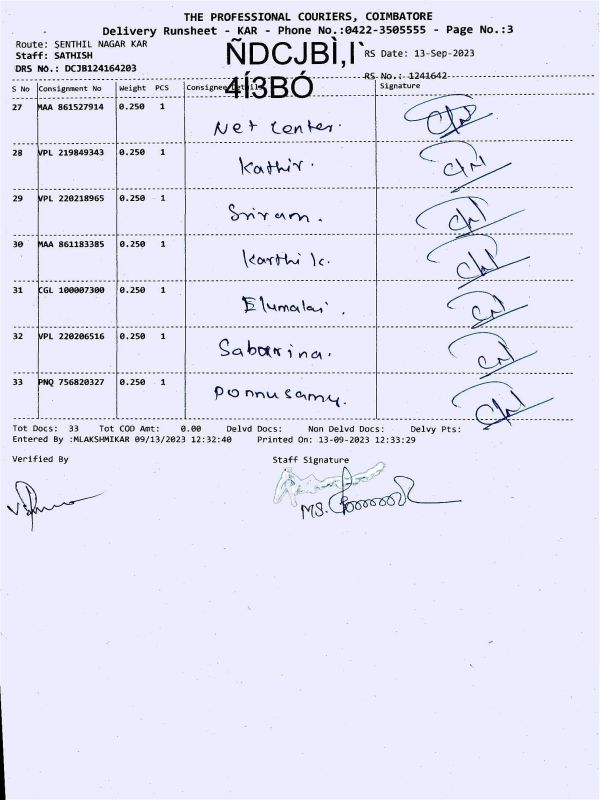 THE PROFESSIONAL COURIERS, COIMBATORE
Delivery Runsheet - KAR - Phone No.:0422-3505555 - Page No.:3
Route: SENTHIL NAGAR KAR
Staff: SATHISH
DRS No.: DCJB124164203
ÑDCJBÌ,I`
4Í3BÓ
RS Date: 13-Sep-2023
RS No.: 1241642
S No Consignment No Weight PCS Consignee Details Signature
27 MAA 861527914 0.250 1 Net Center.
28 VPL 219849343 0.250 1 Kathir.
29 VPL 220218965 0.250 1 Sriram.
30 MAA 861183385 0.250 1 Karthi k.
31 CGL 100007300 0.250 1 Elumalai.
32 VPL 220206516 0.250 1 Sabarina.
33 PNQ 756820327 0.250 1 Ponnusamy.
Tot Docs: 33 Tot COD Amt: 0.00 Delvd Docs: Non Delvd Docs: Delvy Pts:
Entered By :MLAKSHMIKAR 09/13/2023 12:32:40 Printed On: 13-09-2023 12:33:29
Verified By Staff Signature
MS.